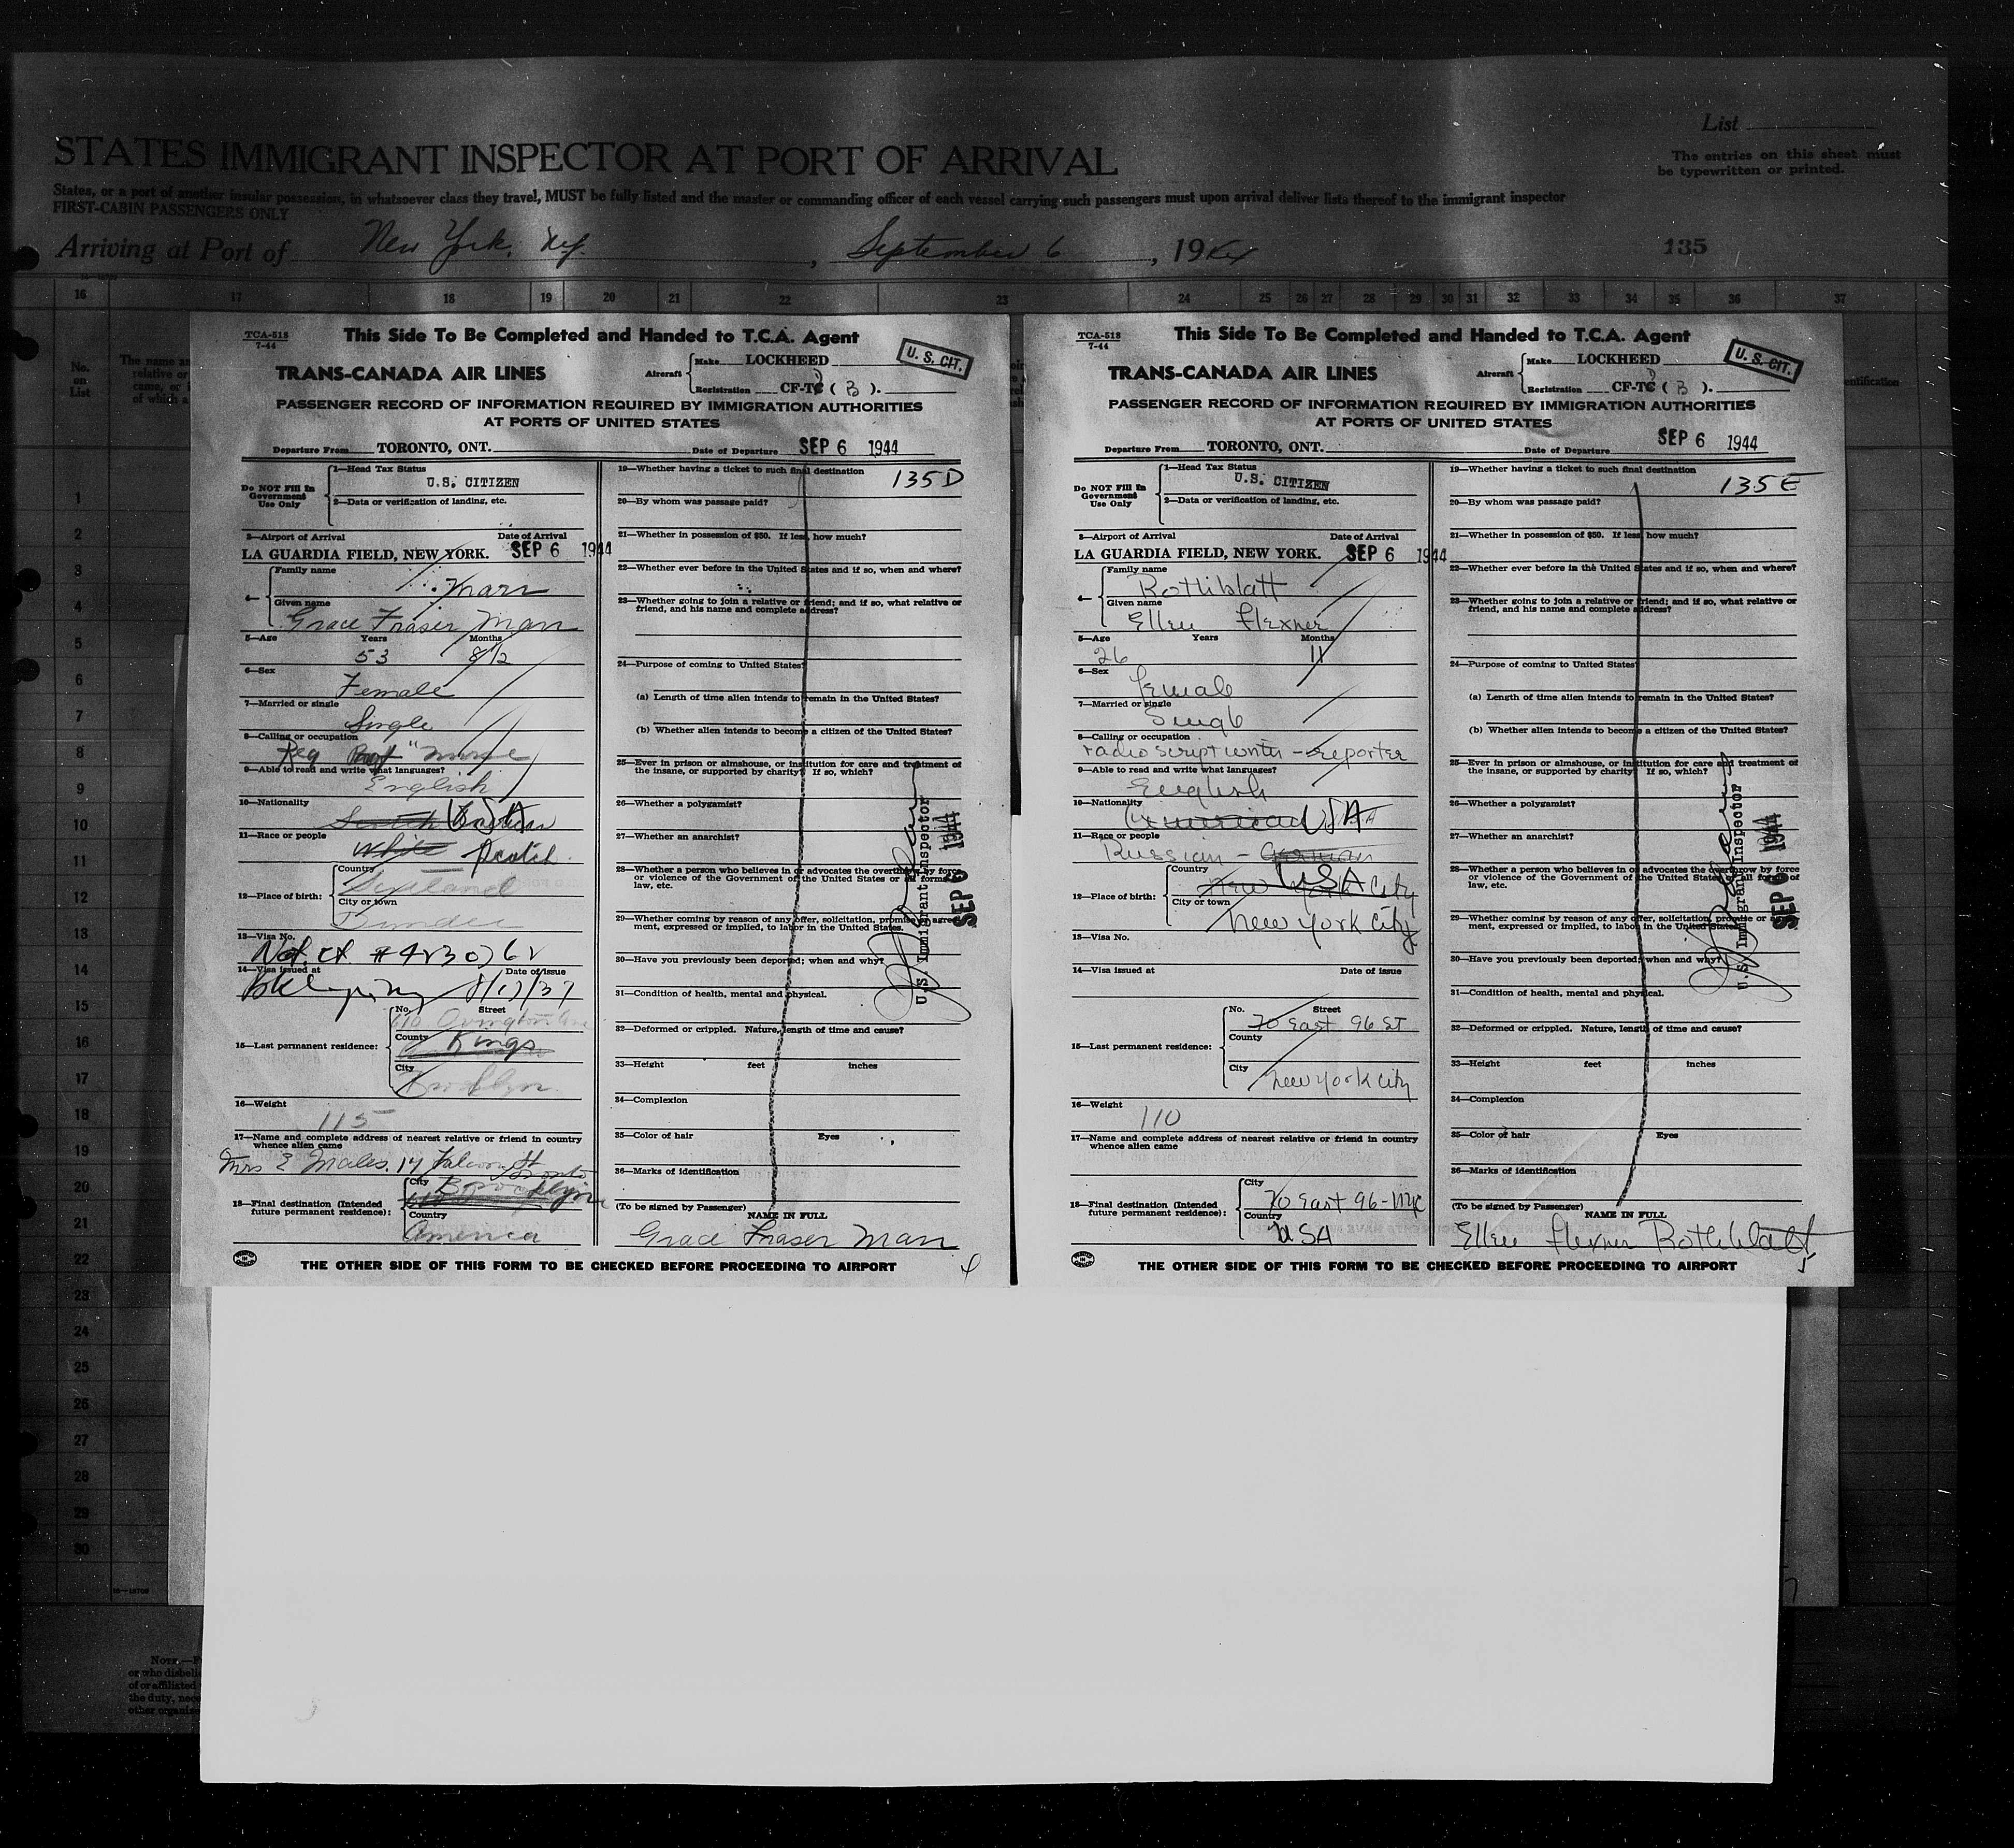 List
STATES IMMIGRANT INSPECTOR AT PORT OF ARRIVAL
The entries on this sheet must
be typewritten or printed.
States, or a port of another insular possession, in whatsoever class they travel, MUST be fully listed and the master or commanding officer of each vessel carrying such passengers must upon arrival deliver lists thereof to the immigrant inspector
FIRST-CABIN PASSENGERS ONLY
Arriving at Port of New York, N.Y., September 6, 1944
135
16 17 18 19 20 21 22 23 24 25 26 27 28 29 30 31 32 33 34 35 36 37
No.
on
List
1
2
3
4
5
6
7
8
9
10
11
12
13
14
15
16
17
18
19
20
21
22
23
24
25
26
27
28
29
30
TCA-518
7-44
This Side To Be Completed and Handed to T.C.A. Agent
U. S. CIT.
TRANS-CANADA AIR LINES
Aircraft
Make LOCKHEED
Registration CF-TC ( B ).
PASSENGER RECORD OF INFORMATION REQUIRED BY IMMIGRATION AUTHORITIES
AT PORTS OF UNITED STATES
Departure From TORONTO, ONT. Date of Departure SEP 6 1944
Do NOT Fill In
Government
Use Only
1—Head Tax Status
U.S. CITIZEN
2—Data or verification of landing, etc.
3—Airport of Arrival Date of Arrival
LA GUARDIA FIELD, NEW YORK. SEP 6 1944
4—
Family name
Marr
Given name
Grace Fraser Marr
5—Age Years Months
53 8/12
6—Sex
Female
7—Married or single
Single
8—Calling or occupation
Reg Nurse
9—Able to read and write what languages?
English
10—Nationality
USA
11—Race or people
White Scotch
12—Place of birth:
Country
Scotland
City or town
Dundee
13—Visa No.
Nat. ct #
14—Visa issued at Date of issue
15—Last permanent residence:
No. Street
Ovington Ave
County
Kings
City
Brooklyn
16—Weight
115
17—Name and complete address of nearest relative or friend in country
whence alien came
Mrs E Males. 14 St Toronto
18—Final destination (Intended
future permanent residence):
City
Brooklyn
Country
America
19—Whether having a ticket to such final destination
135D
20—By whom was passage paid?
21—Whether in possession of $50. If less, how much?
22—Whether ever before in the United States and if so, when and where?
23—Whether going to join a relative or friend; and if so, what relative or
friend, and his name and complete address?
24—Purpose of coming to United States?
(a) Length of time alien intends to remain in the United States?
(b) Whether alien intends to become a citizen of the United States?
25—Ever in prison or almshouse, or institution for care and treatment of
the insane, or supported by charity? If so, which?
26—Whether a polygamist?
27—Whether an anarchist?
28—Whether a person who believes in or advocates the overthrow by force
or violence of the Government of the United States or all forms of
law, etc.
29—Whether coming by reason of any offer, solicitation, promise or agree-
ment, expressed or implied, to labor in the United States.
30—Have you previously been deported; when and why?
31—Condition of health, mental and physical.
32—Deformed or crippled. Nature, length of time and cause?
33—Height feet inches
34—Complexion
35—Color of hair Eyes
36—Marks of identification
(To be signed by Passenger)
NAME IN FULL
Grace Fraser Marr
U.S. Immigrant Inspector
SEP 6 1944
THE OTHER SIDE OF THIS FORM TO BE CHECKED BEFORE PROCEEDING TO AIRPORT
TCA-518
7-44
This Side To Be Completed and Handed to T.C.A. Agent
U. S. CIT.
TRANS-CANADA AIR LINES
Aircraft
Make LOCKHEED
Registration CF-TC ( B ).
PASSENGER RECORD OF INFORMATION REQUIRED BY IMMIGRATION AUTHORITIES
AT PORTS OF UNITED STATES
Departure From TORONTO, ONT. Date of Departure SEP 6 1944
Do NOT Fill In
Government
Use Only
1—Head Tax Status
U.S. CITIZEN
2—Data or verification of landing, etc.
3—Airport of Arrival Date of Arrival
LA GUARDIA FIELD, NEW YORK. SEP 6 1944
4—
Family name
Rothblatt
Given name
Ellen Flexner
5—Age Years Months
26 11
6—Sex
Female
7—Married or single
Single
8—Calling or occupation
radio script writer - reporter
9—Able to read and write what languages?
English
10—Nationality
American USA
11—Race or people
Russian - German
12—Place of birth:
Country
New York City USA
City or town
New York City
13—Visa No.
14—Visa issued at Date of issue
15—Last permanent residence:
No. Street
70 East 96 ST
County
City
New York City
16—Weight
110
17—Name and complete address of nearest relative or friend in country
whence alien came
18—Final destination (Intended
future permanent residence):
City
70 East 96 - NYC
Country
USA
19—Whether having a ticket to such final destination
135E
20—By whom was passage paid?
21—Whether in possession of $50. If less, how much?
22—Whether ever before in the United States and if so, when and where?
23—Whether going to join a relative or friend; and if so, what relative or
friend, and his name and complete address?
24—Purpose of coming to United States?
(a) Length of time alien intends to remain in the United States?
(b) Whether alien intends to become a citizen of the United States?
25—Ever in prison or almshouse, or institution for care and treatment of
the insane, or supported by charity? If so, which?
26—Whether a polygamist?
27—Whether an anarchist?
28—Whether a person who believes in or advocates the overthrow by force
or violence of the Government of the United States or all forms of
law, etc.
29—Whether coming by reason of any offer, solicitation, promise or agree-
ment, expressed or implied, to labor in the United States.
30—Have you previously been deported; when and why?
31—Condition of health, mental and physical.
32—Deformed or crippled. Nature, length of time and cause?
33—Height feet inches
34—Complexion
35—Color of hair Eyes
36—Marks of identification
(To be signed by Passenger)
NAME IN FULL
Ellen Flexner Rothblatt
U.S. Immigrant Inspector
SEP 6 1944
THE OTHER SIDE OF THIS FORM TO BE CHECKED BEFORE PROCEEDING TO AIRPORT